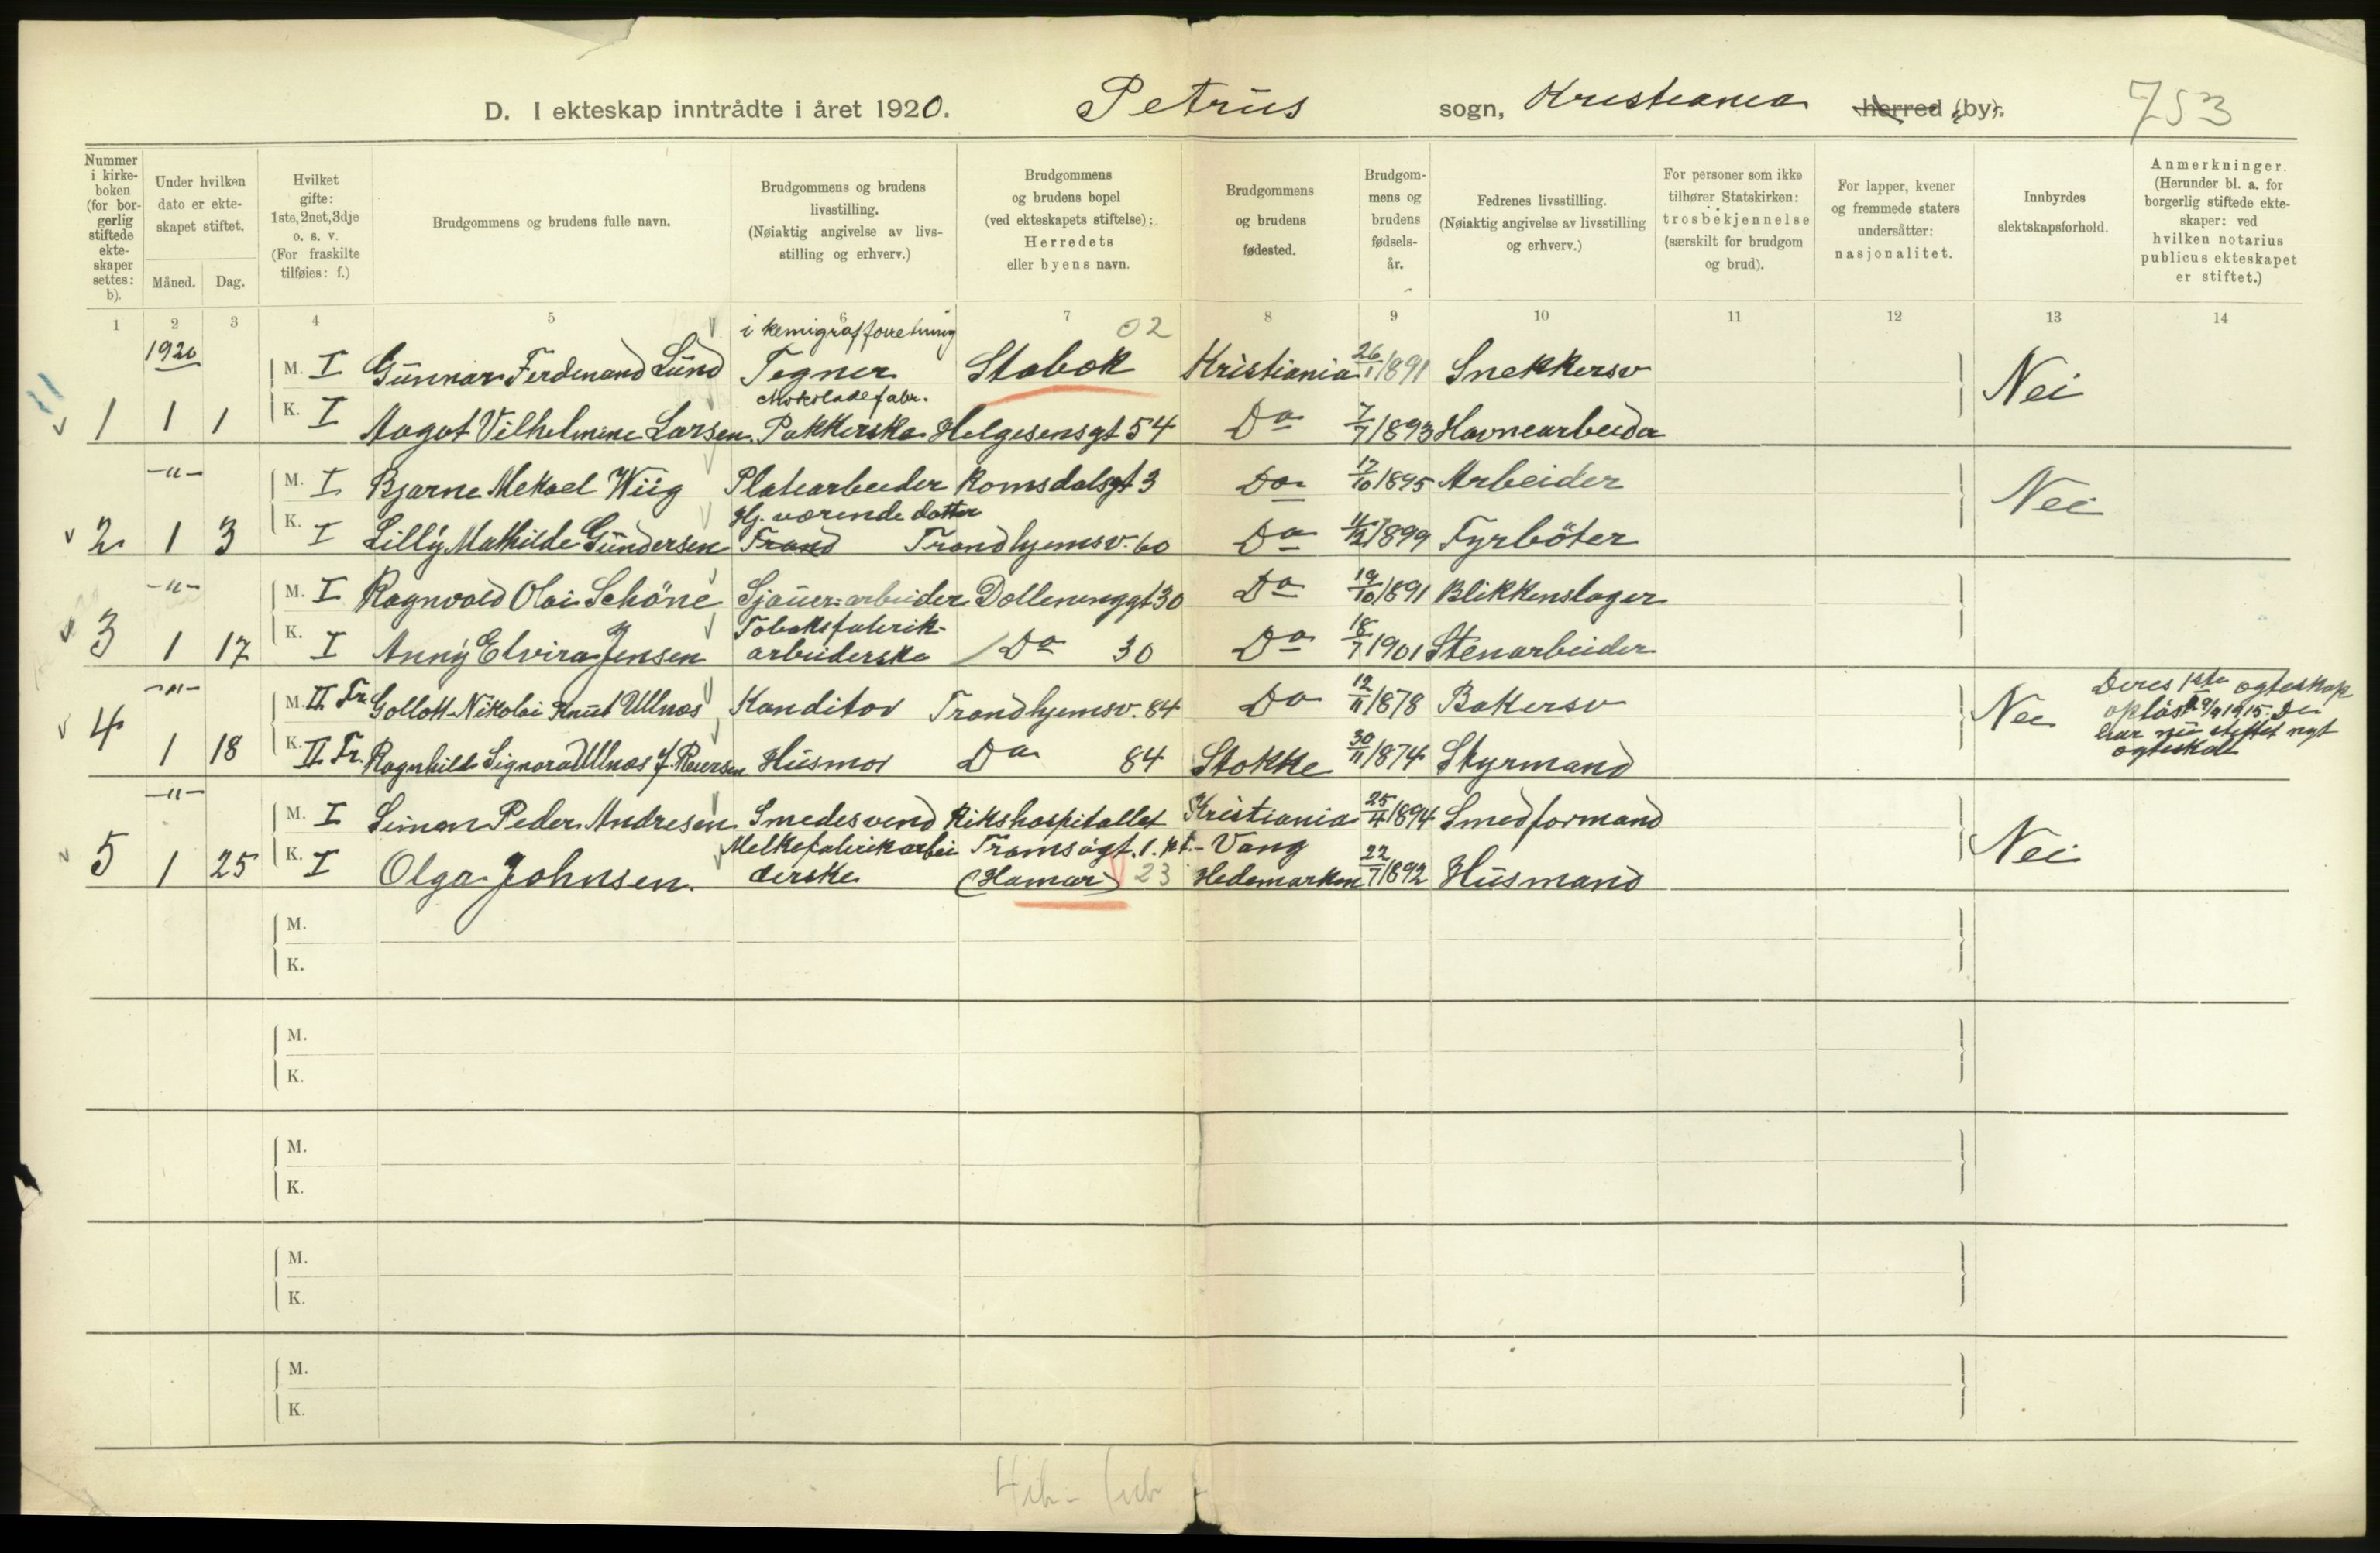 D. I ekteskap inntrådte i året 1920. Petrus sogn, Kristiania herred (by). 753
Nummer i kirkeboken (for borgerlig stiftede ekteskaper settes: b).
Under hvilken dato er ekteskapet stiftet.
Måned. Dag.
Hvilket gifte: 1ste, 2net, 3dje o. s. v. (For fraskilte tilføies: f.)
Brudgommens og brudens fulle navn.
Brudgommens og brudens livsstilling. (Nøiaktig angivelse av livsstilling og erhverv.)
Brudgommens og brudens bopel (ved ekteskapets stiftelse): Herredets eller byens navn.
Brudgommens og brudens fødested.
Brudgommens og brudens fødselsår.
Fedrenes livsstilling. (Nøiaktig angivelse av livsstilling og erhverv.)
For personer som ikke tilhører Statskirken: trosbekjennelse (særskilt for brudgom og brud).
For lapper, kvener og fremmede staters undersåtter: nasjonalitet.
Innbyrdes slektskapsforhold.
Anmerkninger. (Herunder bl. a. for borgerlig stiftede ekteskaper: ved hvilken notarius publicus ekteskapet er stiftet.)
1 2 3 4 5 6 7 8 9 10 11 12 13 14
1920 i kemigrafforretning 02
M. I Gunnar Ferdinand Lund Tegner Stabek Kristiania 26/1 1891 Snekkersv Nei
1 1 1 K. I Aagot Vilhelmine Larsen Chokoladefabr. Pakkerske Helgesensgt 54 Do 7/7 1893 Havnearbeider
-"- M. I Bjarne Mekael Wiig Platearbeider Romsdalsgt 3 Do 17/10 1895 Arbeider Nei
2 1 3 K. I Lilly Mathilde Gundersen Hj. værende datter Trond Trondhjemsv. 60 Do 1899 Fyrböter
-"- M. I Ragnvald Olai Schöne Sjauer-arbeider Dællenenggt 30 Do 19/10 1891 Blikkenslager
3 1 17 K. I Anny Elvira Jensen Tobaksfabrik-arbeiderske Do 30 Do 18/7 1901 Stenarbeider
-"- M. II Fr. Gollott Nikolai Knut Ullnæs Konditor Trondhjemsv. 84 Do 12/11 1878 Bakersv Nei Deres 1ste ægteskap opløst 9/9 1915. De har nu stiftet nyt ægteskab
4 1 18 K. II Fr. Ragnhild Signora Ullnæs f. Reiersen Husmor Do 84 Stokke 30/11 1874 Styrmand
-"- M. I Simon Peder Andresen Smedesvend Rikshospitallet Kristiania 25/4 1894 Smedformand Nei
5 1 25 K. I Olga Johnsen. Melkefabrikarbeiderske Tromsøgt. 1. pt. (Hamar) 23 Vang Hedemarken 22/7 1892 Husmand
M.
K.
M.
K.
M.
K.
M.
K.
M.
K.